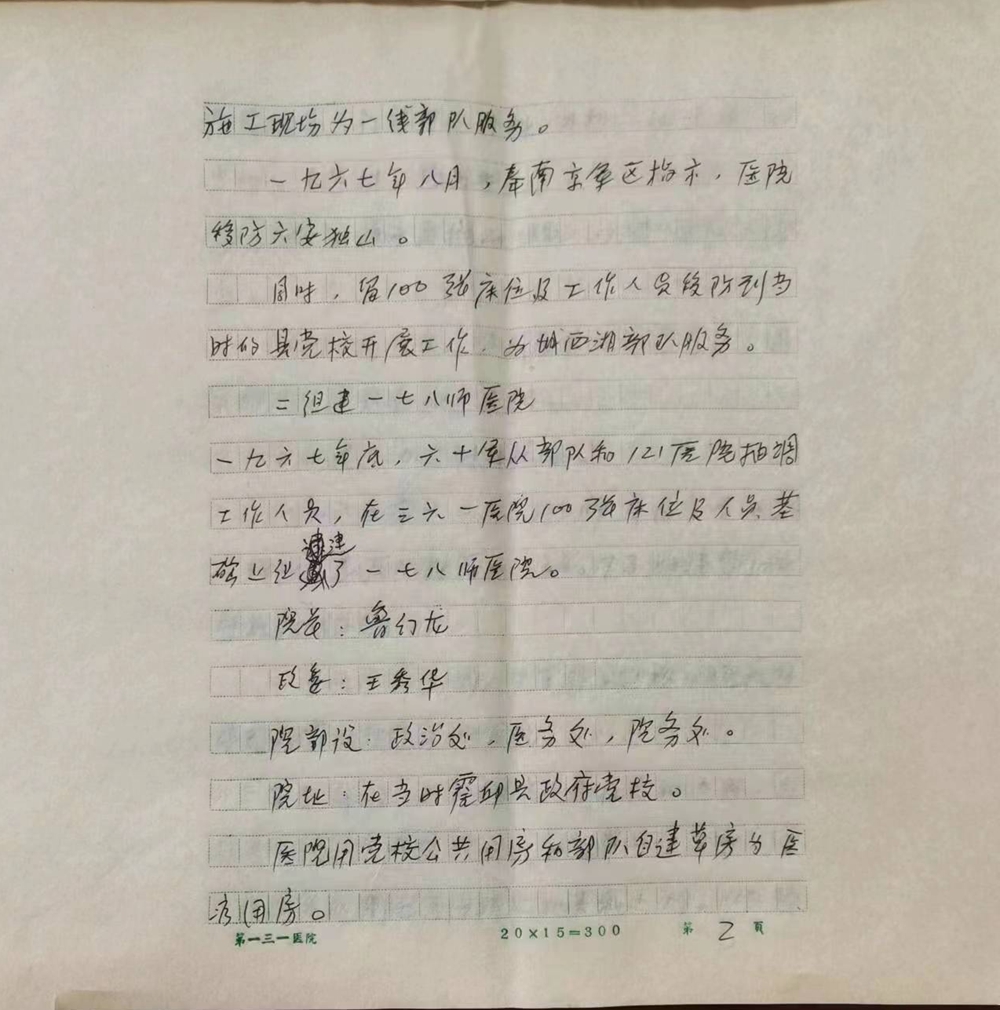 施工现场为一线部队服务。
一九六七年八月，奉南京军区指示，医院
移防六安独山。
同时，留100张床位及工作人员移防到当
时的县党校开展工作，为城西湖部队服务。
二组建一七八师医院
一九六七年底，六十军从部队和121医院抽调
工作人员，在三六一医院100张床位及人员基
础上组建了一七八师医院。
院长：鲁幻龙
政委：王秀华
院部设：政治处，医务处，院务处。
院址：在当时霍邱县政府党校。
医院用党校公共用房和部队自建草房为医
疗用房。
第一三一医院 20×15=300 第2页